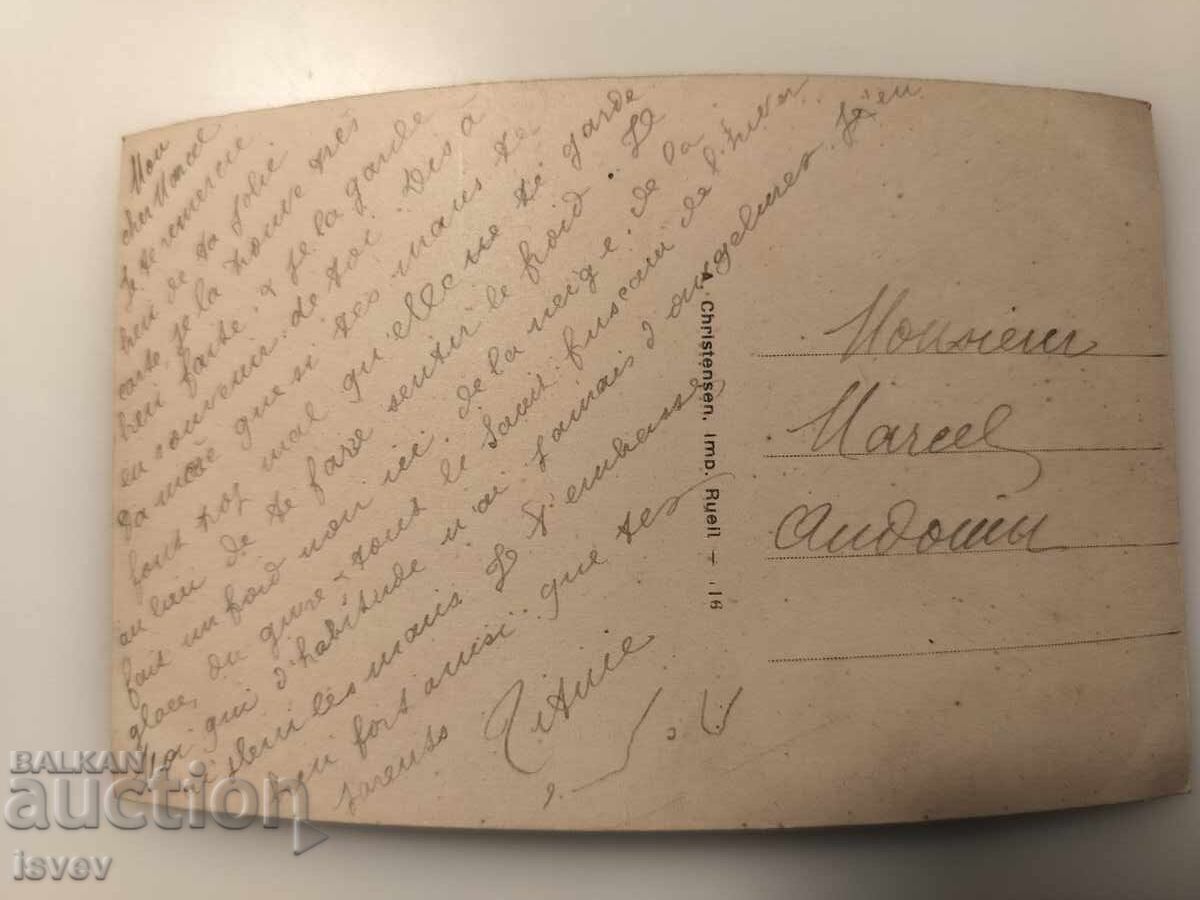 Mon
cher Marcel
Je te remercie
bien de ta jolie
carte je la trouve très
bien faite. & Je la garde
en souvenir de toi. Dis à
ta que si tes mains te
font trop mal qu'elle ne te garde
au lieu de te faire sentir le froid. Il
fait un froid noir ici. de la neige. de la
glace, du givre, tout le
Moi qui d'habitude n'ai jamais d'angelures j'en
ai plein les mains Je t'embrasse
bien fort ainsi que tes
parents Titine
A. Christensen, Imp. Rueil — .16
Monsieur
Marcel
Audouin
BALKAN
auction
isvev